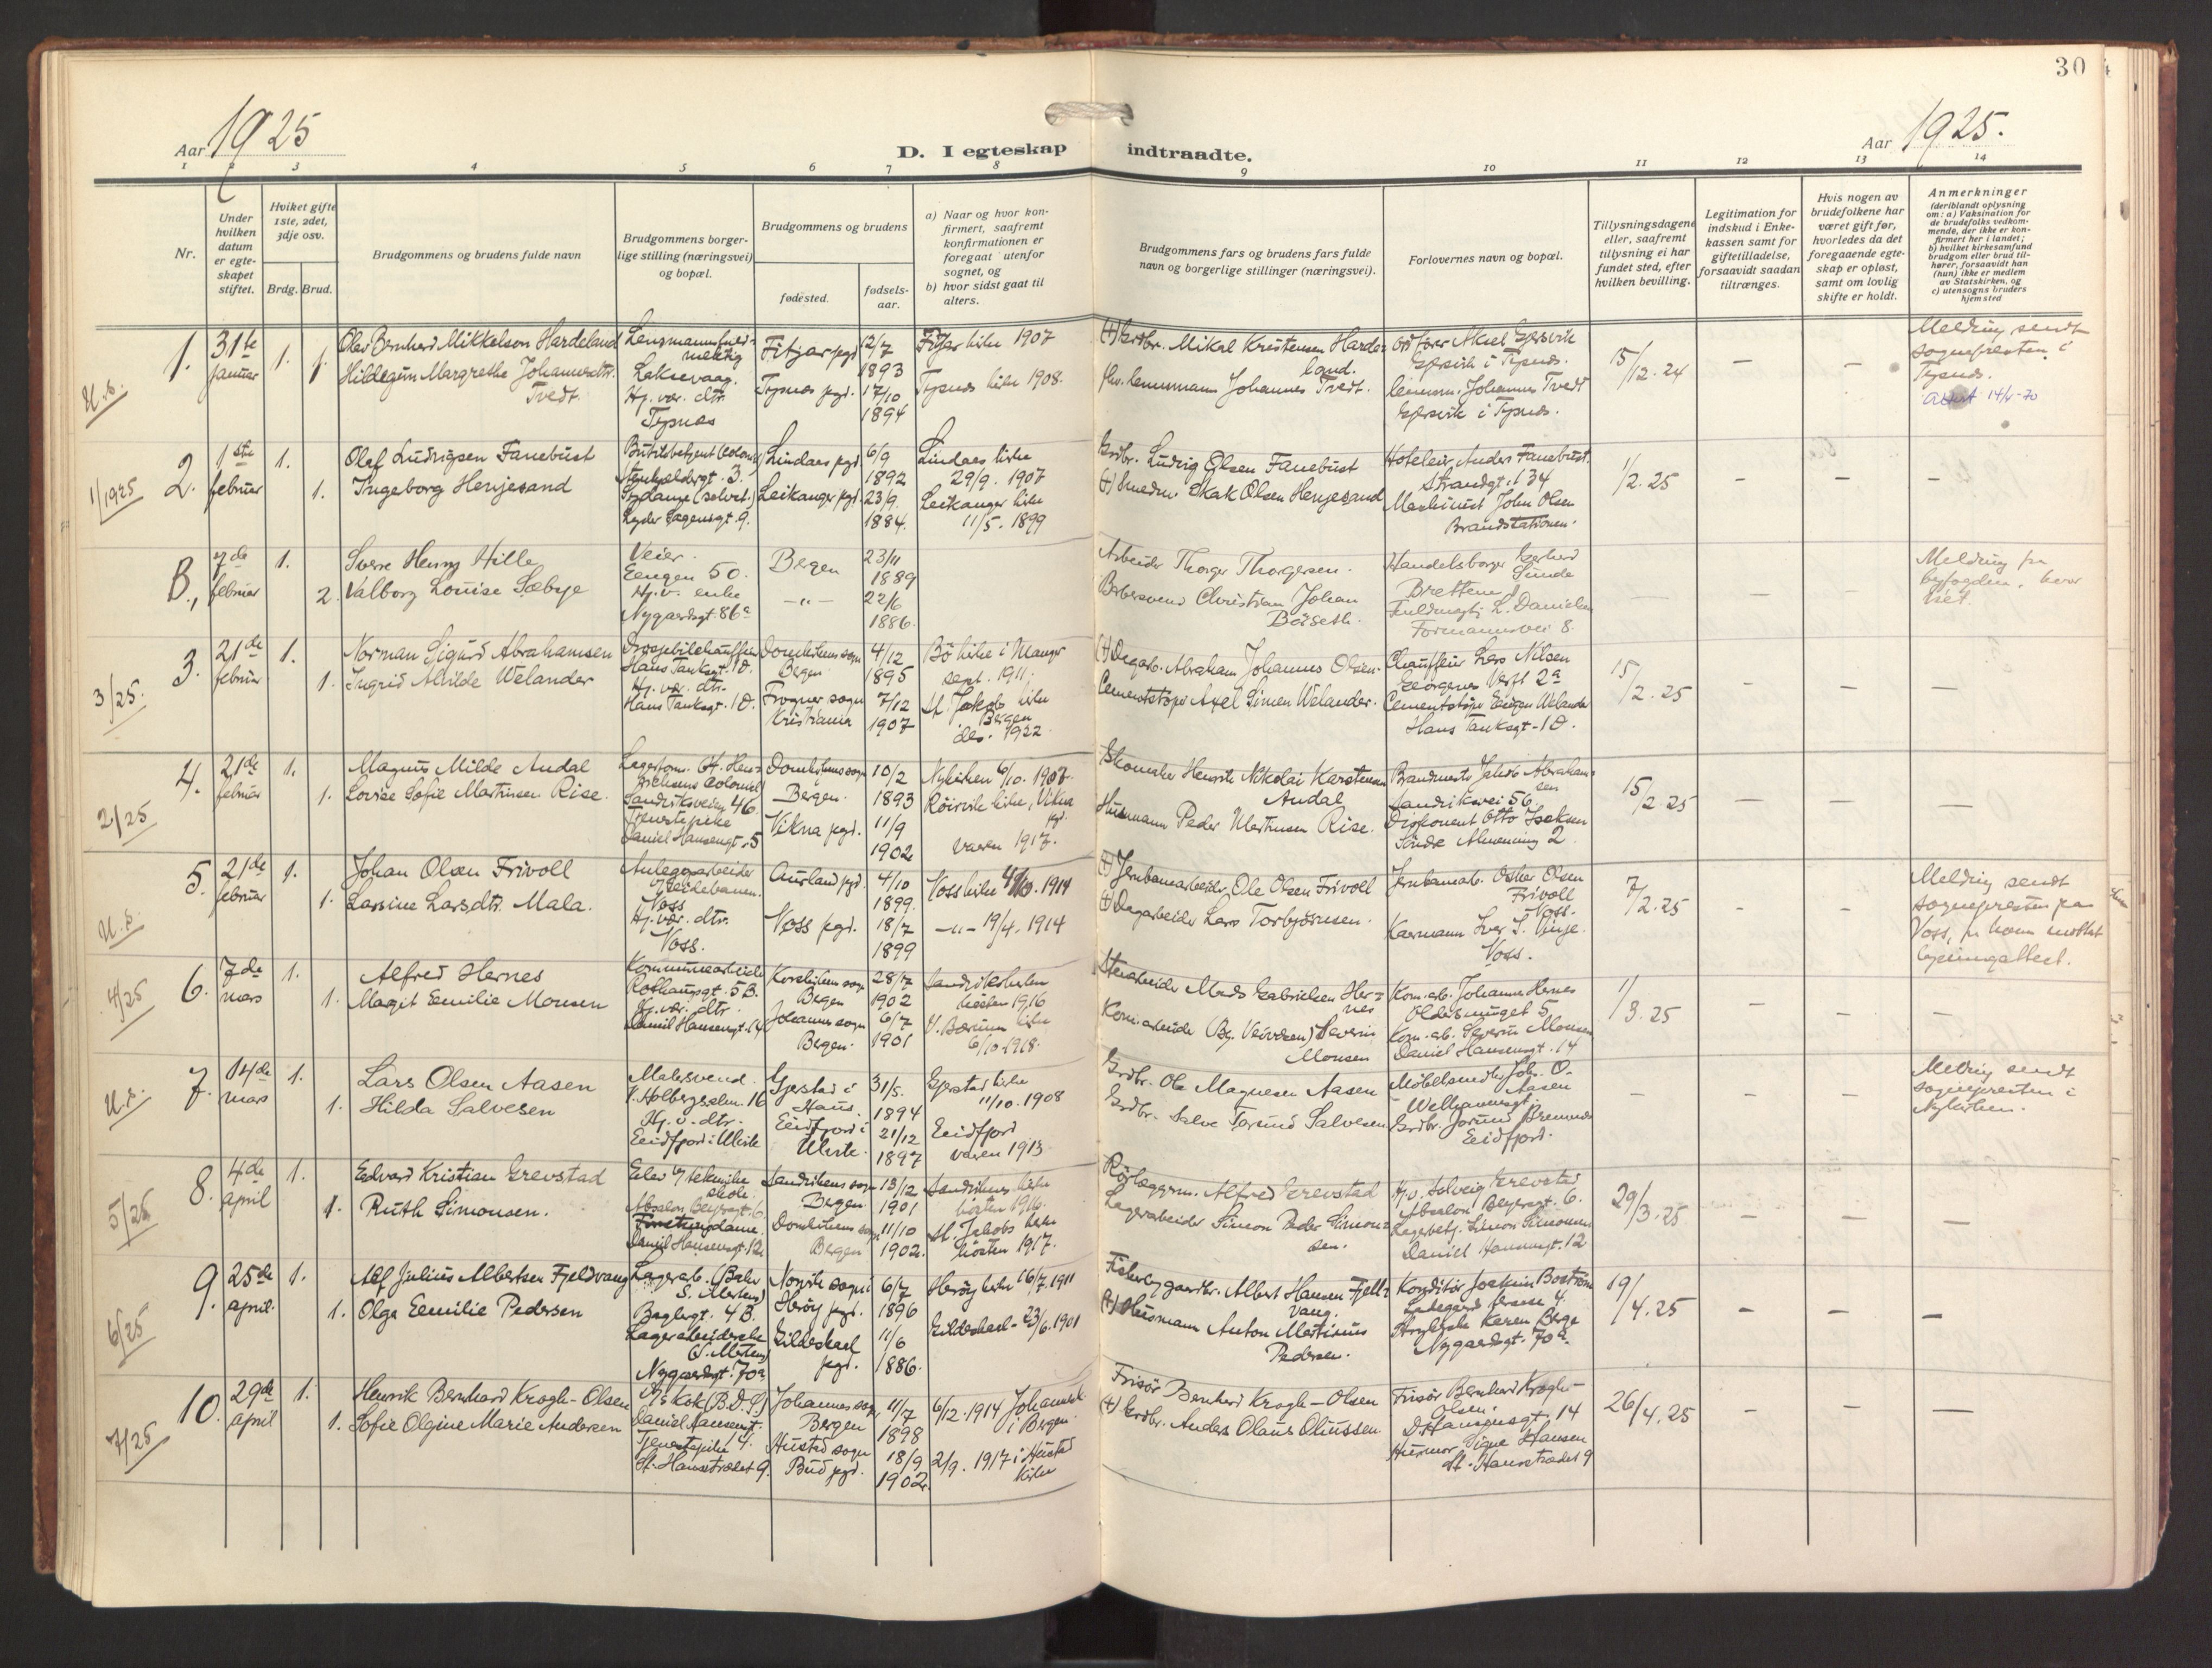 30
Aar 1925
D. I egteskap indtraadte.
Aar 1925.
1 2 3 4 5 6 7 8 9 10 11 12 13 14
Nr.
Under hvilken datum er egteskapet stiftet.
Hvilket gifte 1ste, 2det, 3dje osv.
Brdg. Brud.
Brudgommens og brudens fulde navn
Brudgommens borgerlige stilling (næringsvei) og bopæl.
Brudgommens og brudens
fødested.
fødselsaar.
a) Naar og hvor konfirmert, saafremt konfirmationen er foregaat utenfor sognet, og
b) hvor sidst gaat til alters.
Brudgommens fars og brudens fars fulde navn og borgerlige stillinger (næringsvei).
Forlovernes navn og bopæl.
Tillysningsdagene eller, saafremt tillysning ei har fundet sted, efter hvilken bevilling.
Legitimation for indskud i Enkekassen samt for giftetilladelse, forsaavidt saadan tiltrænges.
Hvis nogen av brudefolkene har været gift før, hvorledes da det foregaaende egteskap er opløst, samt om lovlig skifte er holdt.
Anmerkninger (deriblandt oplysning om: a) Vaksination for de brudefolks vedkommende, der ikke er konfirmert her i landet; b) hvilket kirkesamfund brudgom eller brud tilhører, forsaavidt han (hun) ikke er medlem av Statskirken, og c) utensogns bruders hjemsted
1. 31te januar 1. 1.
Olav Bernhard Mikkelson Hardeland
Hildegun Margrethe Johannesdtr. Tvedt
Laksevaag.
Hj. vær. dtr.
Tysnes
Fitjar pgd. 12/7 1893
Tysnes pgd. 17/10 1894
Fitjar kirke 1907
Tysnes kirke 1908.
(+) Grdbr. Mikal Kristensen Hardeland.
fhv. lensmann Johannes Tvedt.
Ordfører Aksel Gjersvik
Gjersvik i Tysnes.
lensm. Johannes Tvedt
Gjersvik i Tysnes.
15/12. 24
Melding sendt sognepresten i Tysnes.
1/1925
2. 1ste februar 1. 1.
Olaf Ludvigsen Fanebust
Ingeborg Henjesand
Lyder Sagensgt. 9.
Lindaas pgd. 6/9 1892
Leikanger pgd. 23/9. 1884.
Lindaas kirke 29/9. 1907
Leikanger kirke 11/5. 1899
Grdbr. Ludvig Olsen Fanebust
(+) Smedm. Skak Olsen Henjesand
Hoteleier Anders Fanebust.
Strandgt. 134
Maskinist John Olsen
Brandstationen.
1/2. 25
B., 7de februar 1. 2.
Sverre Henry Hille
Valborg Louise Sæbye
Veier.
Eengen 50.
Hj. v. enke
Nygaardsgt. 86a
Bergen 23/11 1889
—"— 22/6 1886.
Arbeider Thorger Thorgersen.
Christian Johan Børseth.
Handelsborger Gerhard Sunde
Fuldmegtig L. Danielsen
Formannsvei 8.
Melding fra byfogden, hvor viet.
3/25.
3. 21de februar 1. 1.
Norman Sigurd Abrahamsen
Ingrid Alvilde Welander
Hans Tanksgt. 10.
Hj. vær. dtr.
Hans Tanksgt. 10.
Domkirkens sogn Bergen 4/12 1895
Frogner sogn Kristiania 7/12 1907
Bø kirke i Manger sept. 1911.
St. Jakobs kirke Bergen des. 1922
(+) Dagarb. Abraham Johannes Olsen.
Cementstøper Axel Simen Welander.
Chauffeur Lars Nilsen
Georgenes Verft 2a
Hans Tanksgt. 10.
15/2. 25
2/25
4. 21de februar 1. 1.
Magnus Milde Andal
Lovise Sofie Martinsen Rise.
Sandviksveien 46.
Tjenestepike
Daniel Hansensgt. 5
Domkirkens sogn Bergen. 10/2 1893
Vikna pgd. 11/9 1902
Nykirken 6/10. 1907.
Røirvik kirke, Vikna pgd. vaaren 1917.
Skomaker Henrik Nikolai Karstensen Andal
Husmann Peder Martinsen Rise.
Brandmester Jakob Abrahamsen
Sandviksvei 56.
Disponent Otto Isaksen
Søndre Almenning 2.
15/2. 25
5. 21de februar 1. 1.
Johan Olsen Frivoll
Larsine Larsdtr. Mala.
Anlegsarbeider
Voss
Hj. vær. dtr.
Voss.
Aurland pgd. 4/10 1899.
Voss pgd. 18/7 1899
Voss kirke 1914
—"— 19/4. 1914
(+) Jernbanearbeider Ole Olsen Frivoll
(+) Dagarbeider Lars Torbjørnsen.
Jernbanearb. Oskar Olsen Frivoll
Voss.
Kaarmann Iver S. Vinje.
Voss.
7/2. 25
Melding sendt sognepresten paa Voss, fra ham mottat lysningsattest.
4/25
6. 7de mars 1. 1.
Alfred Hernes
Magnit Emilie Monsen
Kommunearbeider
Rothaugsgt. 5B.
Hj. vær. dtr.
Daniel Hansensgt. 14
Korskirkens sogn Bergen 28/7 1902
Johannes sogn Bergen. 6/7 1901
Sandvikskirken høsten 1916
V. Bærum kirke 6/10 1918.
Stenarbeider Mads Gabrielsen Hernes
Kom. arbeider (Bg. Veivæsen) Severin Monsen
Kom. arb. Johannes Hernes
Oldersmuget 5
Kom. arb. Severin Monsen
Daniel Hansensgt. 14
1/3. 25
7. 14de mars 1. 1.
Lars Olsen Aasen
Hilda Salvesen
Malersvend
Hj. v. dtr.
Eidfjord i Ulvik
Gjestad i Haus. 31/5. 1894
Eidfjord i Ulvik. 21/12 1897
Gjestad kirke 11/10. 1908
Eidfjord vaaren 1913.
Grdbr. Ole Magnesen Aasen
Grdbr. Salve Torund Salvesen
Møbelhandler Joh. O. Aasen
Welhavensgt.
Eidfjord.
Melding sendt sognepresten i Nykirken.
5/25
8. 4de april 1. 1.
Edvard Kristian Grevstad
Ruth Simonsen.
Elev v/ tekniske skole.
Absalon Beyersgt. 6.
Daniel Hansensgt. 12.
Sandvikens sogn Bergen 13/12 1901
Domkirkens sogn Bergen 11/10 1902.
Sandvikens kirke høsten 1916.
St. Jakobs kirke høsten 1917.
Rørleggerm. Alfred Grevstad
Lagerarbeider Simon Peder Simonsen.
Hj. v. Solveig Grevstad
Absalon Beyersgt. 6.
Lagerbetj. Simon Simonsen
Daniel Hansensgt. 12
29/3. 25
6/25
9. 25de april. 1. 1.
Alf Julius Albertsen Fjeldvang
Olga Emilie Pedersen
Baglergt. 4B.
Lagerarbeiderske
Nygaardsgt. 70a
Norvik sogn i Herøy pgd. 6/7 1896
Gildeskaal pgd. 11/6 1886.
Herøy kirke 16/7. 1911
Gildeskaal - 23/6. 1901
Fisker og gaardbr. Albert Hansen Fjellvang.
(+) Husmann Anton Martinus Pedersen.
Konditor Joakim Bostrøm
Ladegaards terrasse 4.
Karen Berge
Nygaardsgt. 70a
19/4. 25
7/25
10. 29de april 1. 1.
Henrik Bernhard Krogh-Olsen
Sofie Olgine Marie Andersen
Kok (B.D.S.)
Daniel Hansensgt. 14.
Tjenestepike
St. Hansstrædet 9.
Johannes sogn Bergen 11/7 1898
Hustad sogn Bud pgd. 18/9 1902.
6/12. 1914 Johannesk. i Bergen
2/9. 1917 i Hustad kirke
Frisør Bernhard Krogh-Olsen
(+) Grdbr. Anders Olaus Oliussen
Frisør Bernhard Krogh-Olsen.
D. Hansensgt. 14
Signe Hansen
St. Hansstrædet 9
26/4. 25